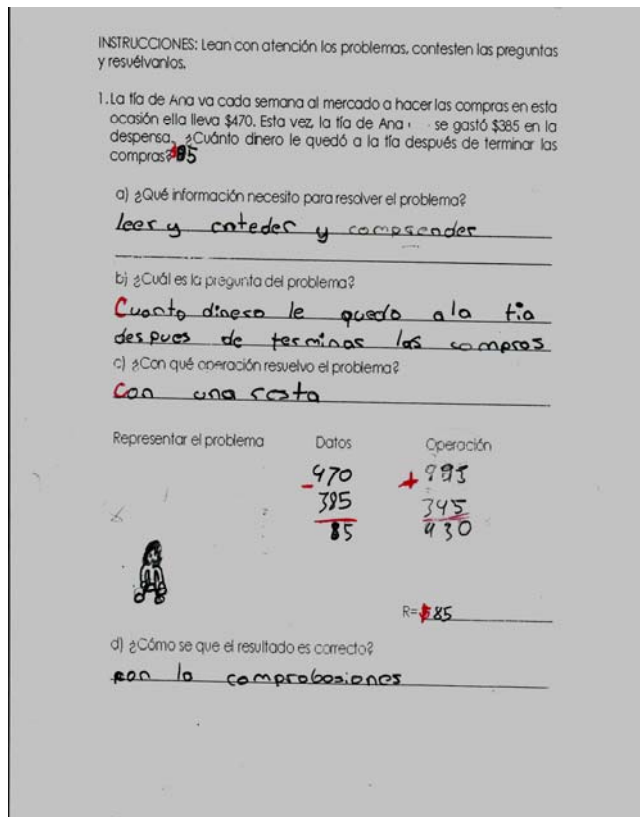 INSTRUCCIONES: Lean con atención los problemas, contesten las preguntas
y resuélvanlos.
1. La tía de Ana va cada semana al mercado a hacer las compras en esta
ocasión ella lleva $470. Esta vez, la tía de Ana se gastó $385 en la
despensa. ¿Cuánto dinero le quedó a la tía después de terminar las
compras? 85
a) ¿Qué información necesito para resolver el problema?
leer y enteder y comprender
b) ¿Cuál es la pregunta del problema?
Cuanto dinero le quedo a la tia
despues de terminar las compras
c) ¿Con qué operación resuelvo el problema?
Con una resta
Representar el problema Datos Operación
470 +
- 385 345
85 430
R= $85
d) ¿Cómo se que el resultado es correcto?
con la comprobosiones